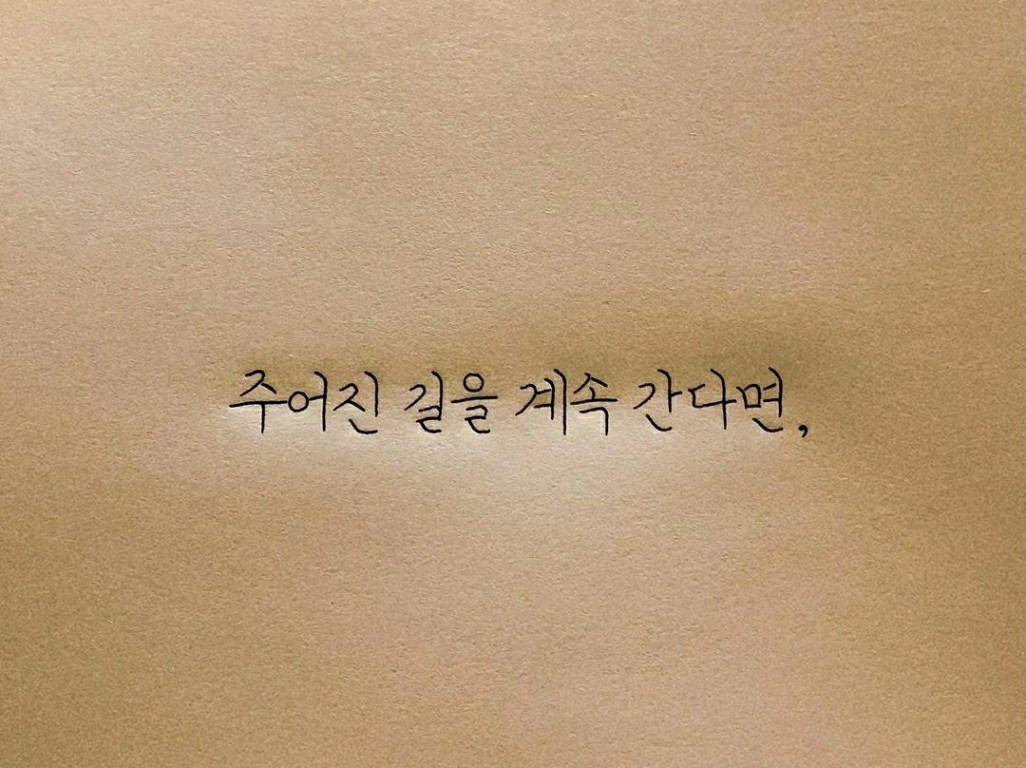 주어진 길을 계속 간다면,